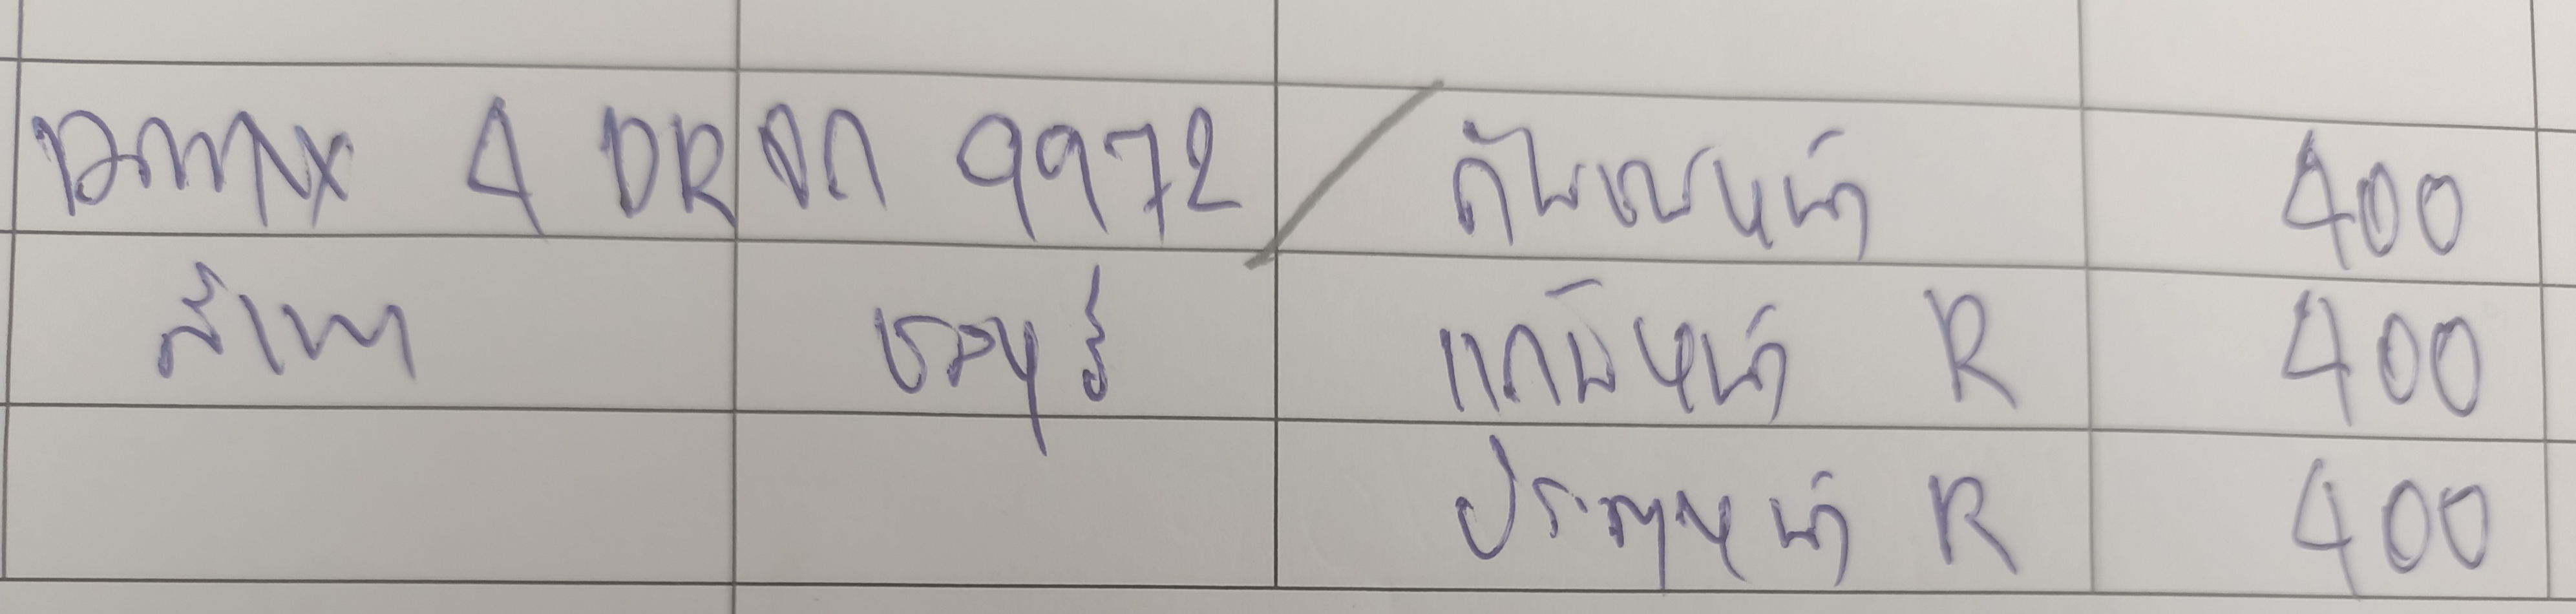 DMAX 4 DR ขก 9972 / กันชนหน้า 400
สีเทา ชลบุรี แก้มหน้า R 400
ประตูหน้า R 400